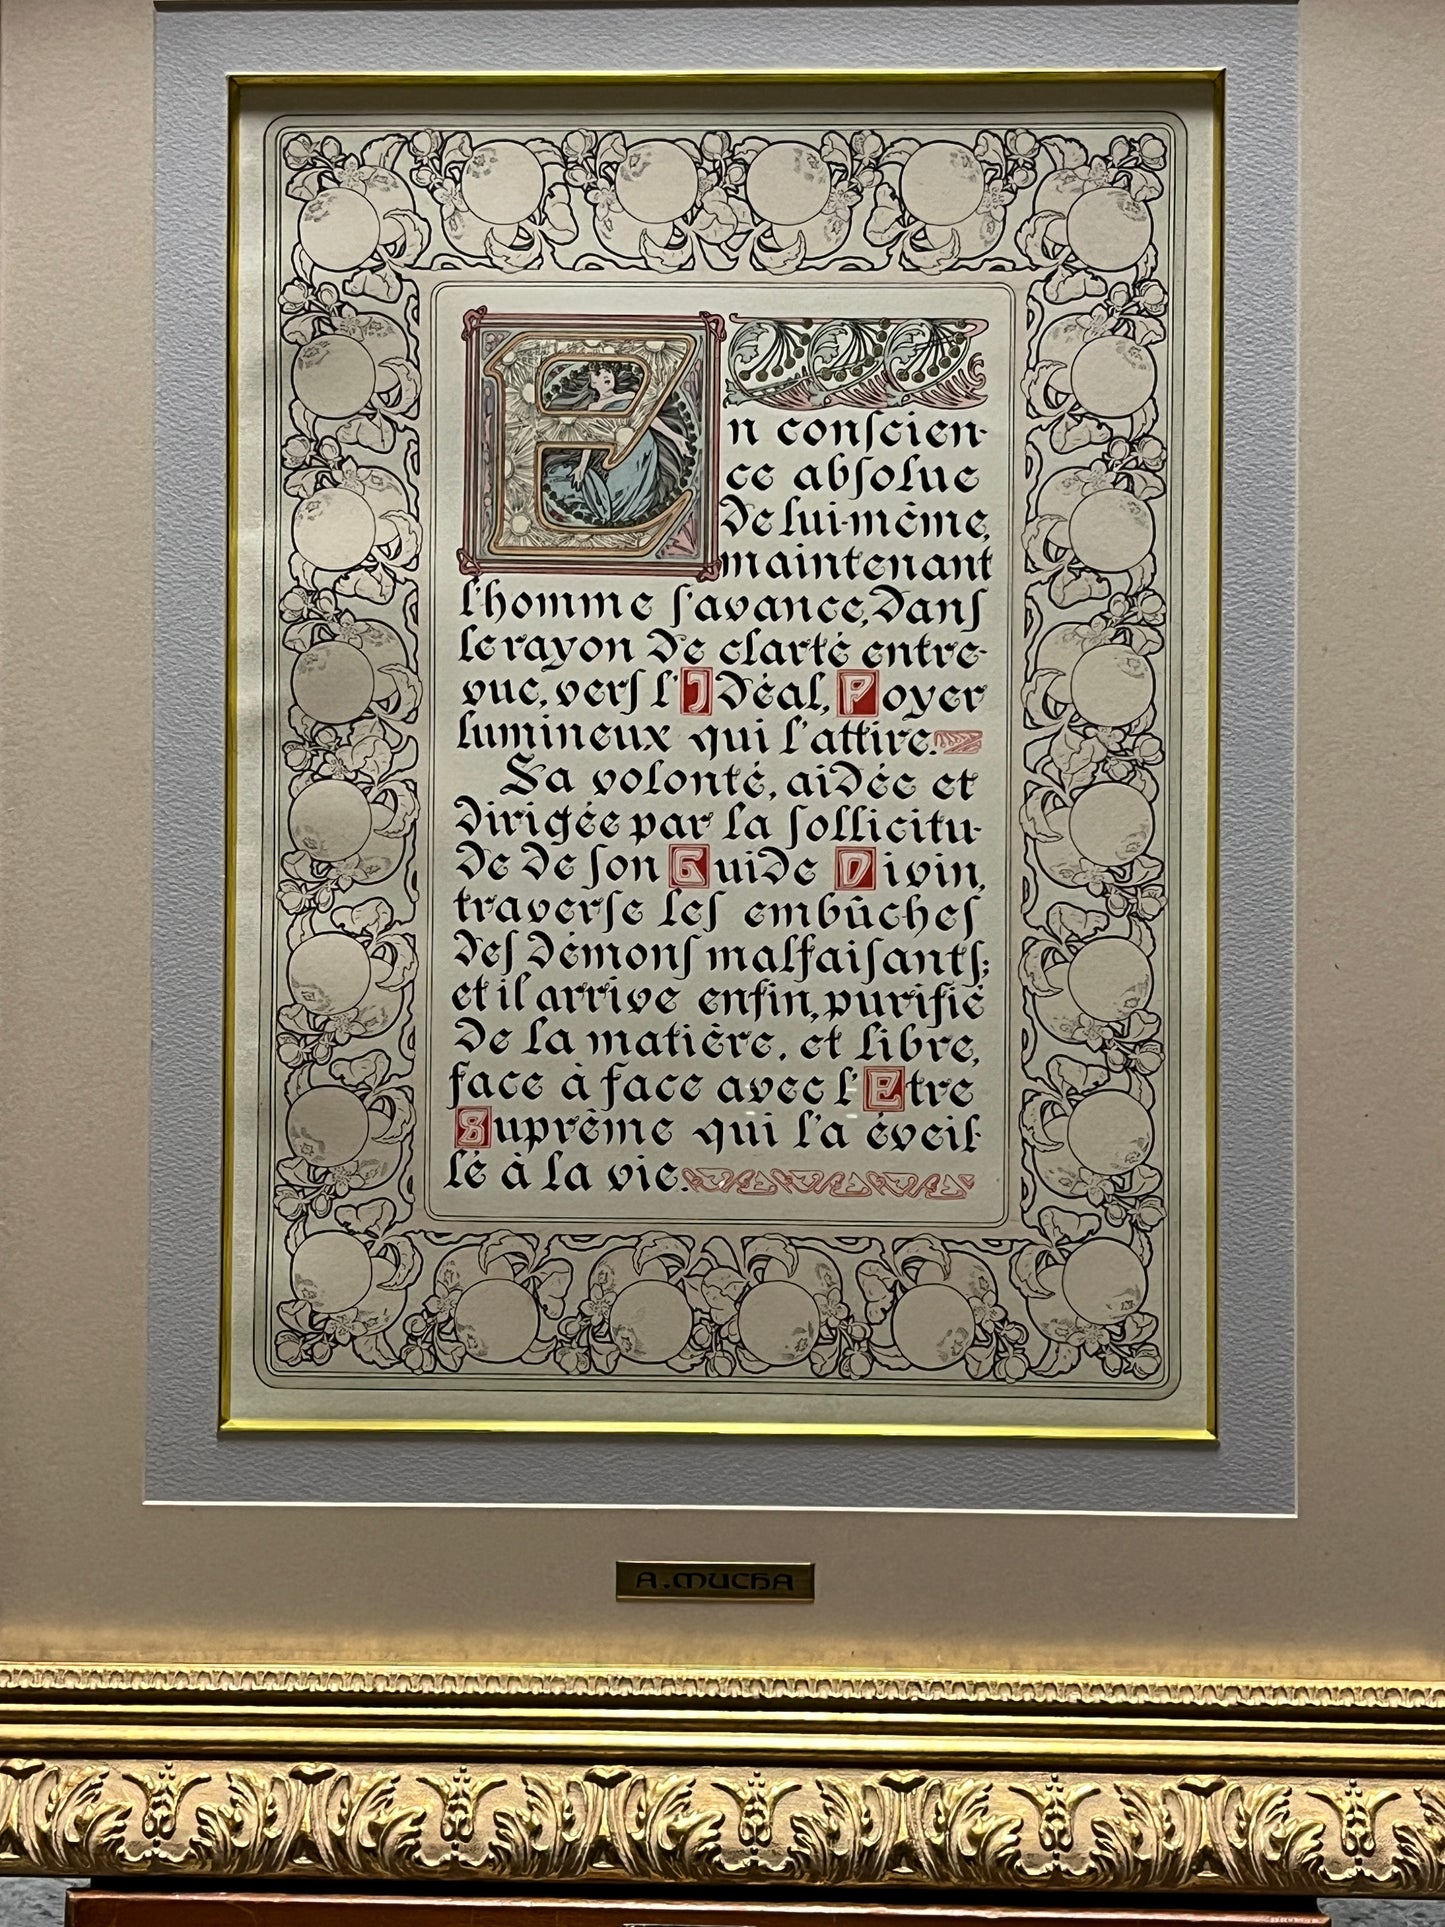 En conscien-
ce absolue
de lui-même,
maintenant
l'homme s'avance, dans
le rayon de clarté entre-
vue, vers l'Idéal, Foyer
lumineux qui l'attire.
Sa volonté, aidée et
dirigée par la sollicitu-
de de son Guide Divin,
traverse les embûches
des démons malfaisants;
et il arrive enfin, purifié
de la matière, et libre,
face à face avec l'Etre
Suprême qui l'a éveil-
lé à la vie.
A. MUCHA